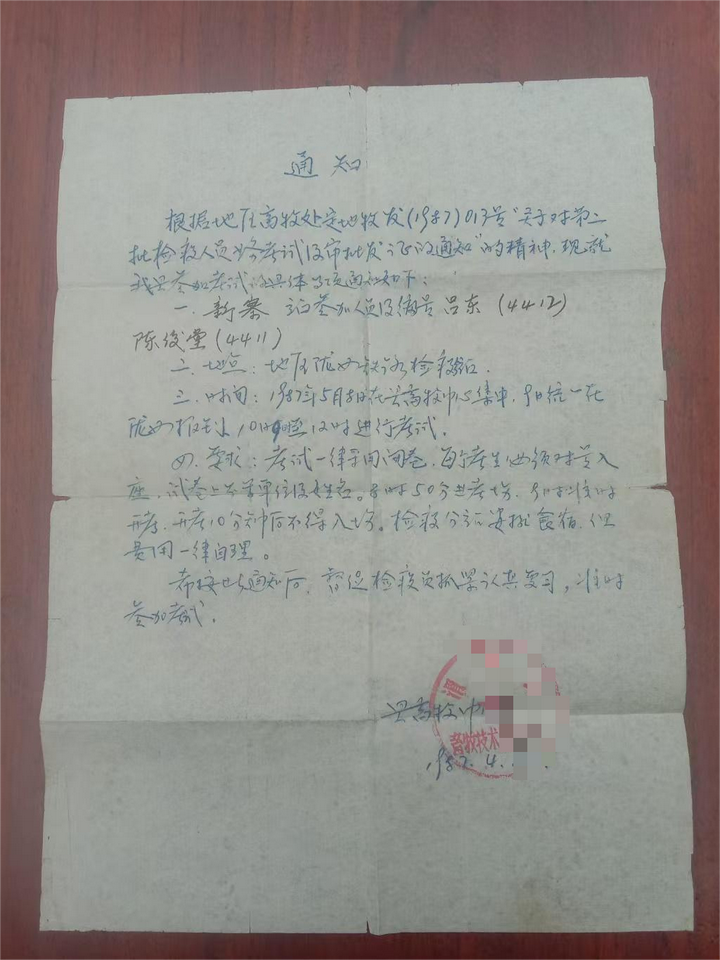 通知
根据地区畜牧处定地牧发(1987)013号"关于对第二
批检疫人员业务考试及审批发证的通知"的精神,现就
我县参加考试的具体事项通知如下:
一. 新寨 站参加人员及编号 吕东 (4412)
陈俊堂(4411)
二. 地点: 地区陇西铁路检疫站.
三. 时间: 1987年5月8日在县畜牧中心集中. 9日统一在
陇西报到, 10日 时进行考试.
四. 要求: 考试一律采用闭卷, 每个考生必须对号入
座, 试卷上不写单位及姓名。8时50分进考场, 9时准时
开考, 开考10分钟后不得入场。检疫分站安排食宿, 但
费用一律自理。
希接此通知后, 督促检疫员抓紧认真复习, 准时
参加考试.
县畜牧中
畜牧技术
1987.4.